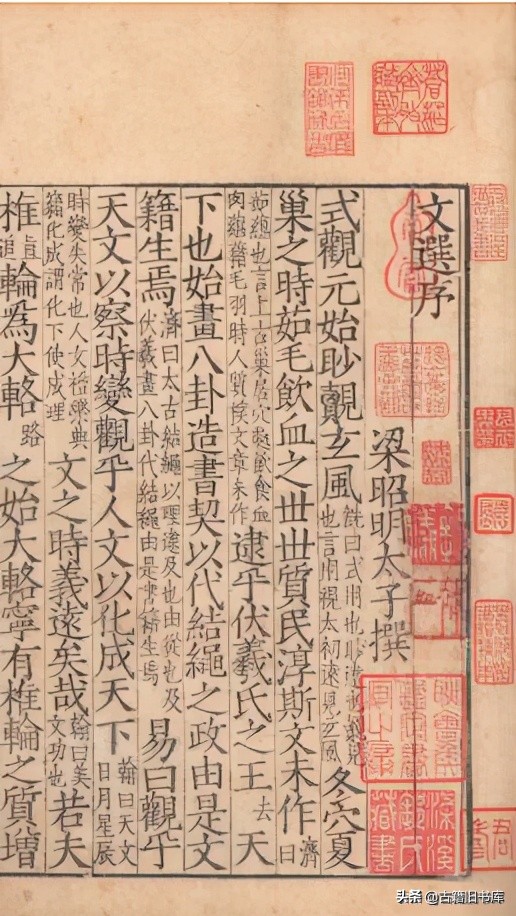 文選序
梁昭明太子撰
式觀元始眇覿玄風銑曰式用也眇遠也覿見也言用視太初遠見玄風冬穴夏
巢之時茹毛飲血之世世質民淳斯文未作濟曰
茹緼也言上古巢居穴處飲食血肉緼藉毛羽時人質樸文章未作逮乎伏羲氏之王去天
下也始畫八卦造書契以代結繩之政由是文
籍生焉濟曰太古結繩以理逮及也由從也及伏羲畫八卦代結繩由是書籍生焉易曰觀乎
天文以察時變觀乎人文以化成天下翰曰天文日月星辰
時變失常也人文禮樂典籍化成謂化下使成理文之時義遠矣哉翰曰美文功也若夫
椎直追輪爲大輅路之始大輅寧有椎輪之質增
头条 @古籍旧书库